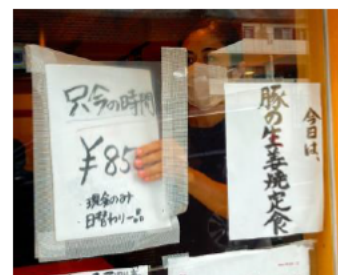 只今の時間
¥85
・現金のみ
・日替わり一品
今日は、
豚の生姜焼定食